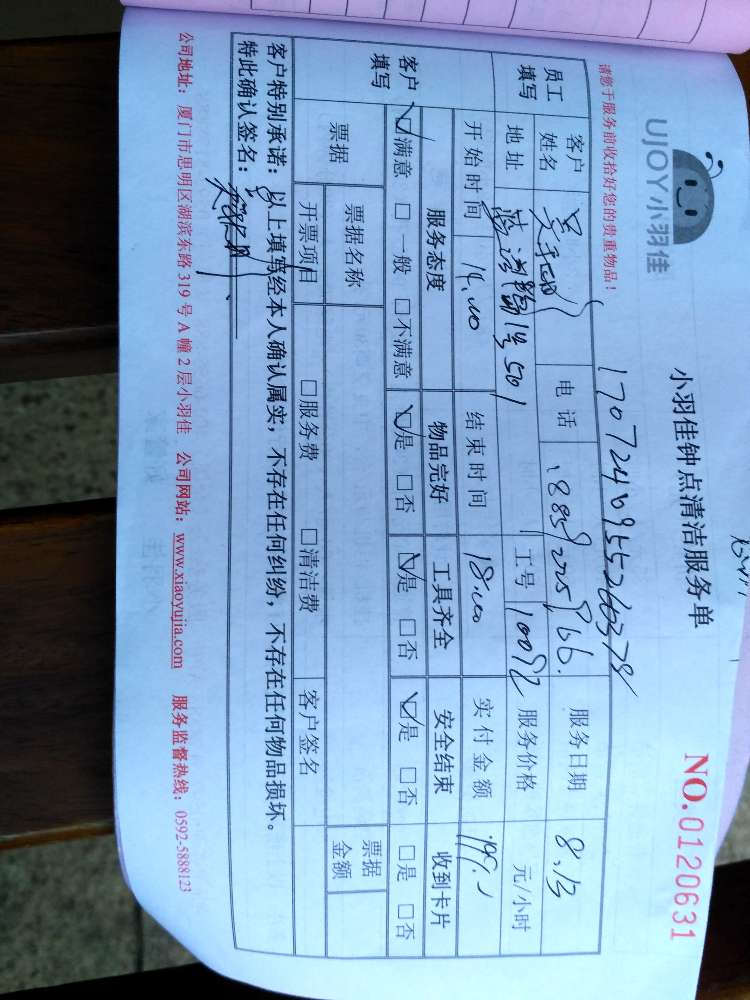 UJOY小羽佳
小羽佳钟点清洁服务单
NO.0120631
请您于服务前收拾好您的贵重物品！
员工填写
客户姓名 电话 服务日期 8.13
地址 501 工号 10092 服务价格 元/小时
开始时间 14.00 结束时间 18.00 实付金额
客户填写
服务态度 物品完好 工具齐全 安全结束 收到卡片
☑满意 □一般 □不满意 ☑是 □否 ☑是 □否 ☑是 □否 □是 □否
票据 票据名称 票据金额
开票项目 □服务费 □清洁费 客户签名
客户特别承诺：以上填写经本人确认属实，不存在任何纠纷，不存在任何物品损坏。
特此确认签名：
公司地址：厦门市思明区湖滨东路 319 号 A 幢 2 层小羽佳 公司网站：www.xiaoyujia.com 服务监督热线：0592-5888123